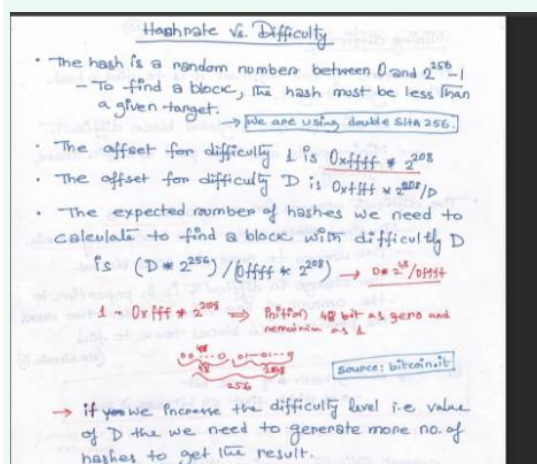 Hashrate Vs. Difficulty
• The hash is a random number between 0 and 2^256-1
- To find a block, the hash must be less than
a given target.
→ We are using double SHA 256.
• The offset for difficulty 1 is 0xffff * 2^208
• The offset for difficulty D is 0xffff * 2^208/D
• The expected number of hashes we need to
calculate to find a block with difficulty D
is (D * 2^256) / (0ffff * 2^208) → D * 2^48/0ffff
1 - 0xfff * 2^208 ⇒ Initial 48 bit as zero and
remainin as 1
00....0 01-01--9
48 208
256
source: bitcoin.it
→ if we increase the difficulty level i.e value
of D the we need to generate more no. of
hashes to get the result.